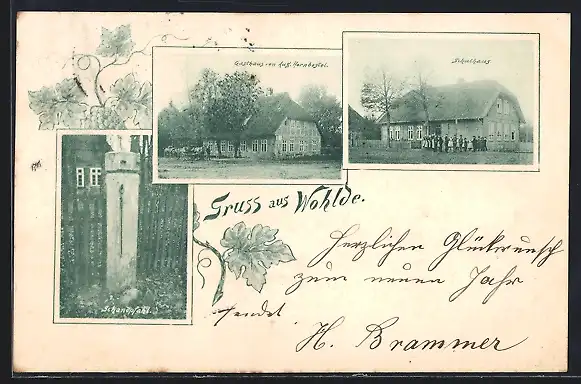 Gasthaus von Aug. Hornbostel.
Schulhaus
Schandpfahl.
Gruss aus Wohlde.
Herzlichen Glückwunsch
zum neuen Jahr
sendet
H. Brammer